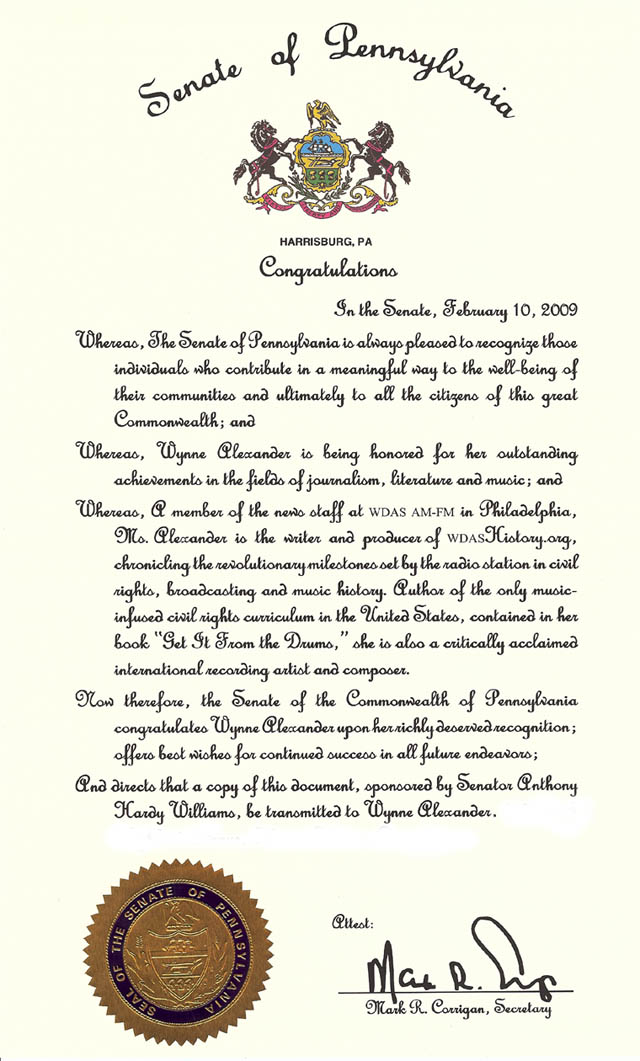 Senate of Pennsylvania
HARRISBURG, PA
Congratulations
In the Senate, February 10, 2009
Whereas, The Senate of Pennsylvania is always pleased to recognize those
individuals who contribute in a meaningful way to the well-being of
their communities and ultimately to all the citizens of this great
Commonwealth; and
Whereas, Wynne Alexander is being honored for her outstanding
achievements in the fields of journalism, literature and music; and
Whereas, A member of the news staff at WDAS AM-FM in Philadelphia,
Ms. Alexander is the writer and producer of WDASHistory.org,
chronicling the revolutionary milestones set by the radio station in civil
rights, broadcasting and music history. Author of the only music-
infused civil rights curriculum in the United States, contained in her
book "Get It From the Drums," she is also a critically acclaimed
international recording artist and composer.
Now therefore, the Senate of the Commonwealth of Pennsylvania
congratulates Wynne Alexander upon her richly deserved recognition;
offers best wishes for continued success in all future endeavors;
And directs that a copy of this document, sponsored by Senator Anthony
Hardy Williams, be transmitted to Wynne Alexander.
SEAL OF THE SENATE OF PENNSYLVANIA
Attest:
Mark R. Corrigan, Secretary